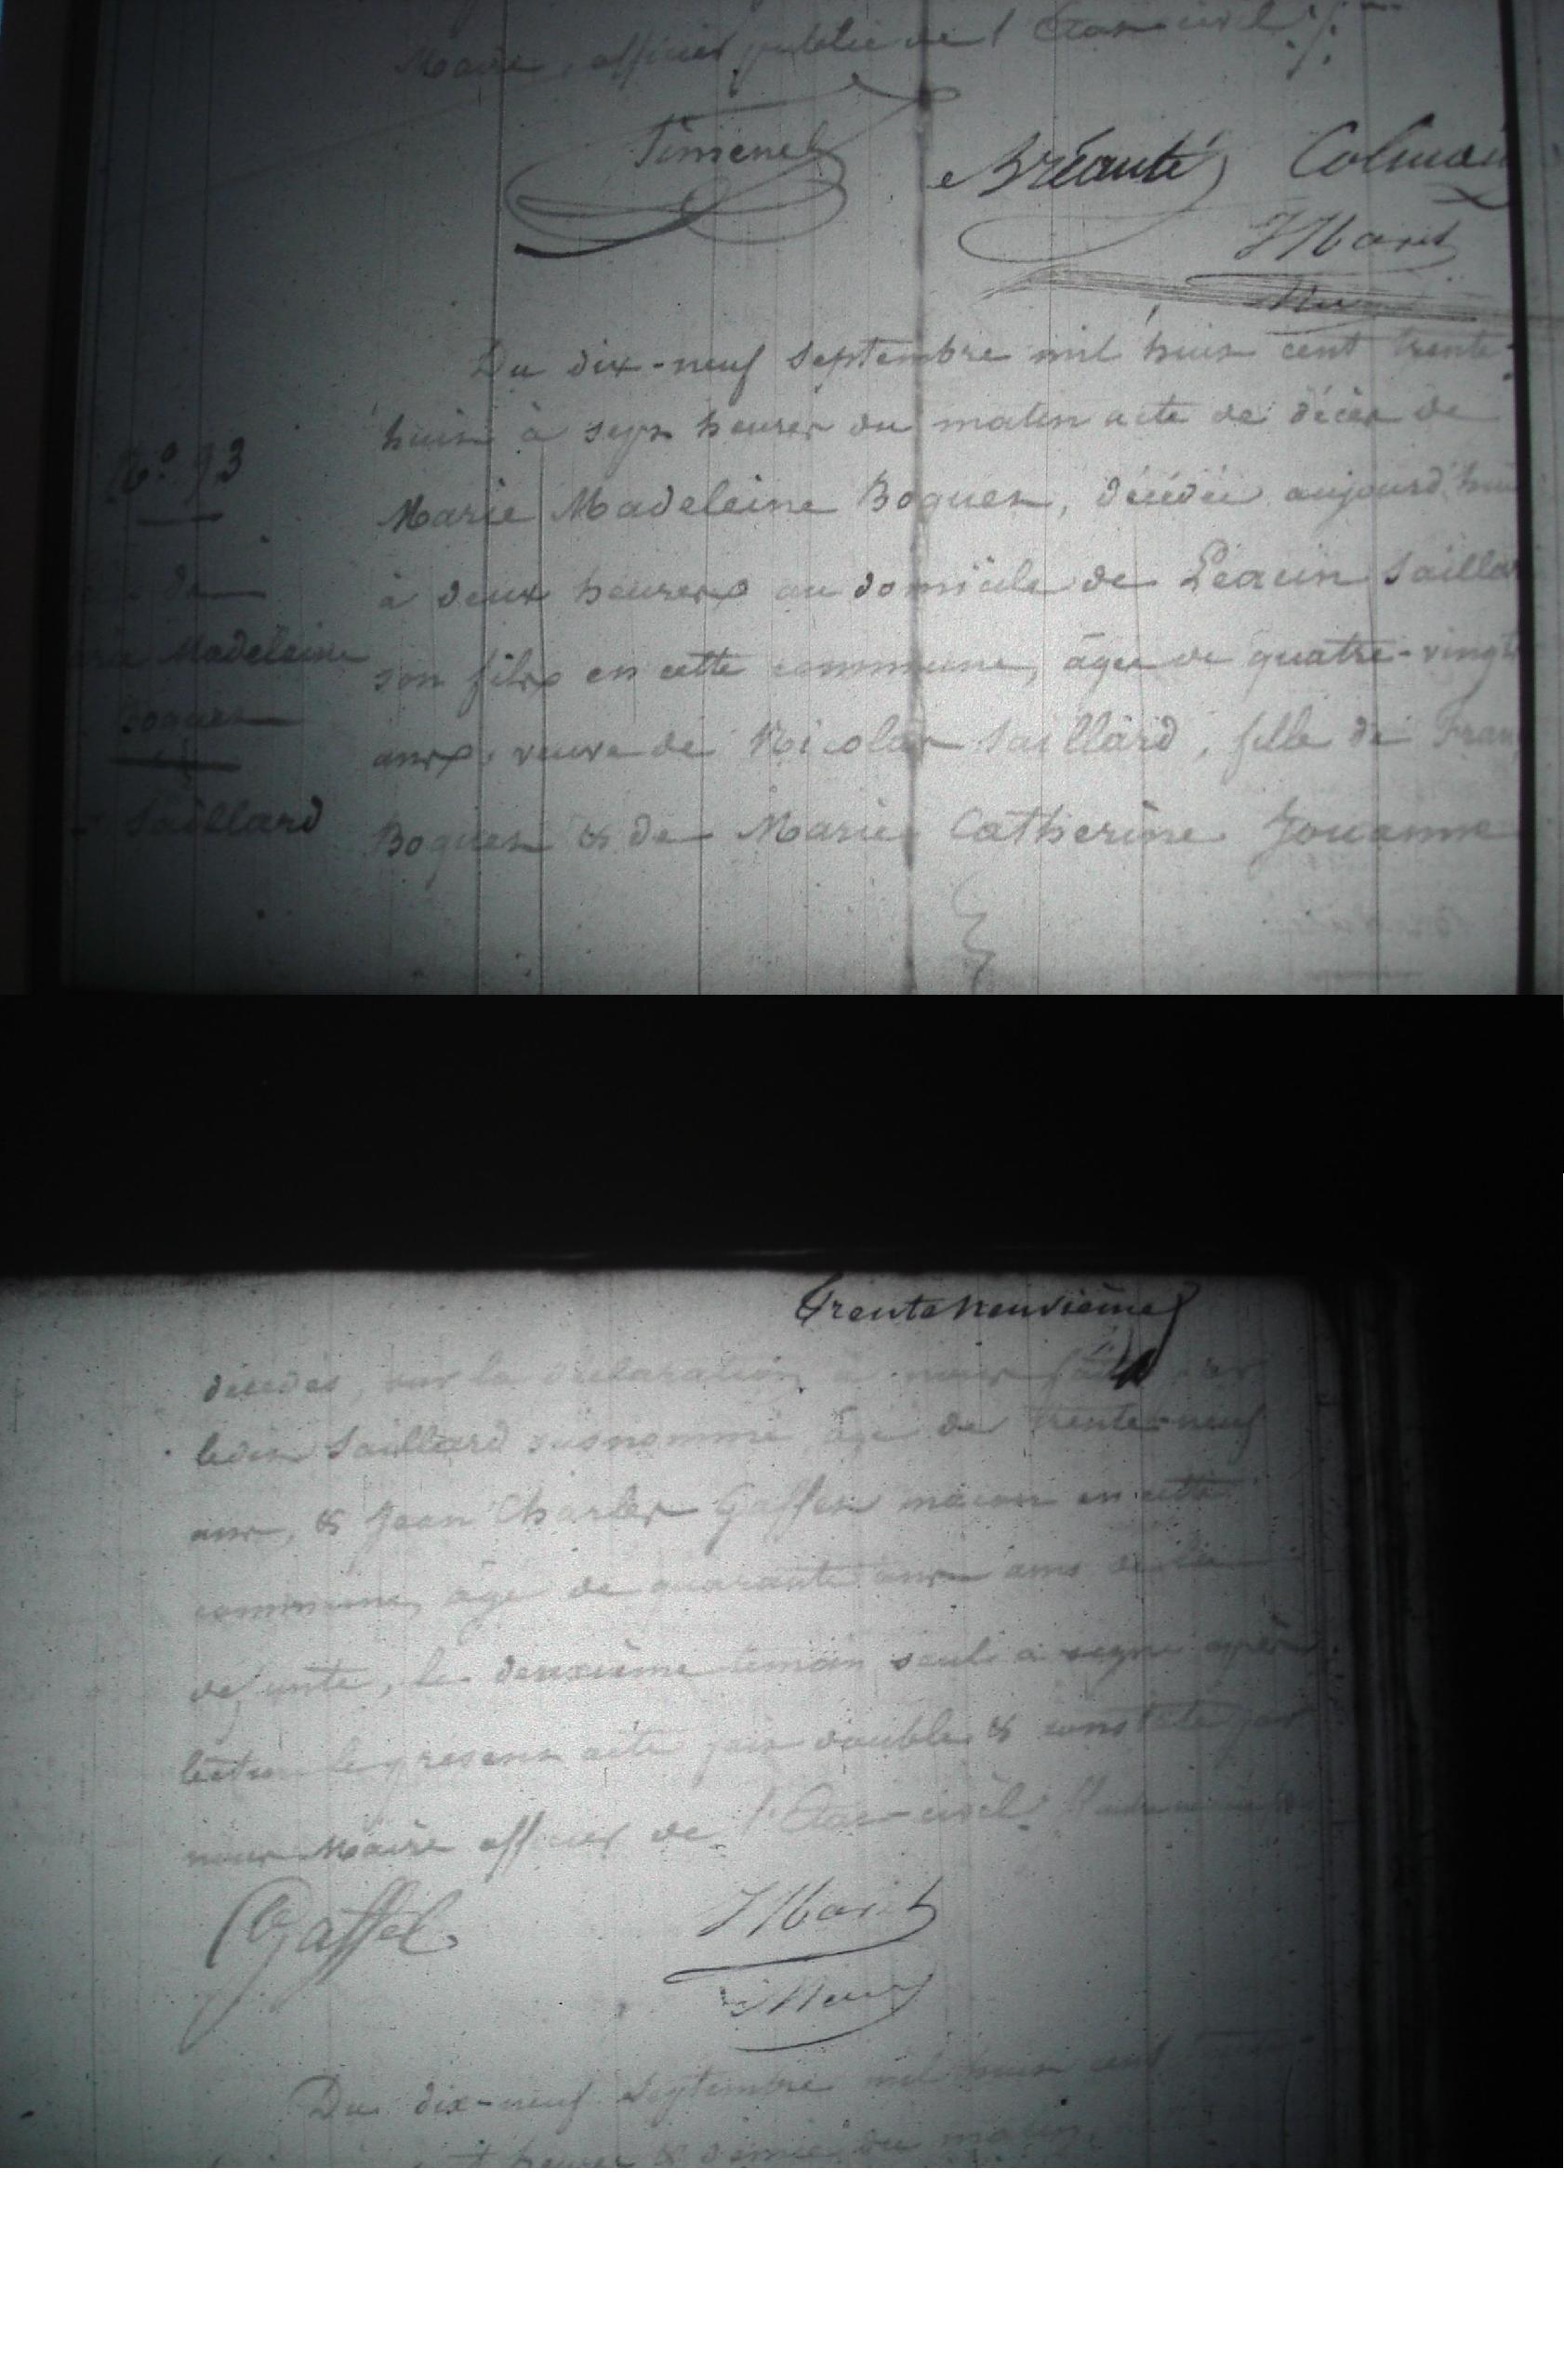 Maire, officier public de l'Etat civil ./.
Timenel
Bréauté Colmai
JMaris
Maire
Du dix-neuf Septembre mil huit cent trente-
huit à sept heures du matin acte de décès de
N.° 93
Marie Madeleine Boquet, décédée aujourd'hui
de
à deux heures au domicile de Saillar
Madeleine
son fils en cette commune, âgée de quatre-vingt
Boquet
ans, veuve de Nicolas Saillard, fille de Fran
Saillard
Boquet & de Marie Catherine Jouanne
Trente neuvième
décédés, sur la déclaration à nous faite par
ledit Saillard susnommé âgé de trente-neuf
ans, & Jean Charles Gaffet maçon en cette
commune, âgé de quarante ans ami de la
defunte, le deuxième témoin seul a signé après
lecture le présent acte fait double & constaté par
nous Maire officier de l'Etat-civil
Gaffel
JMaris
Maire
Du dix-neuf Septembre mil huit cent trente
heures & demie du matin